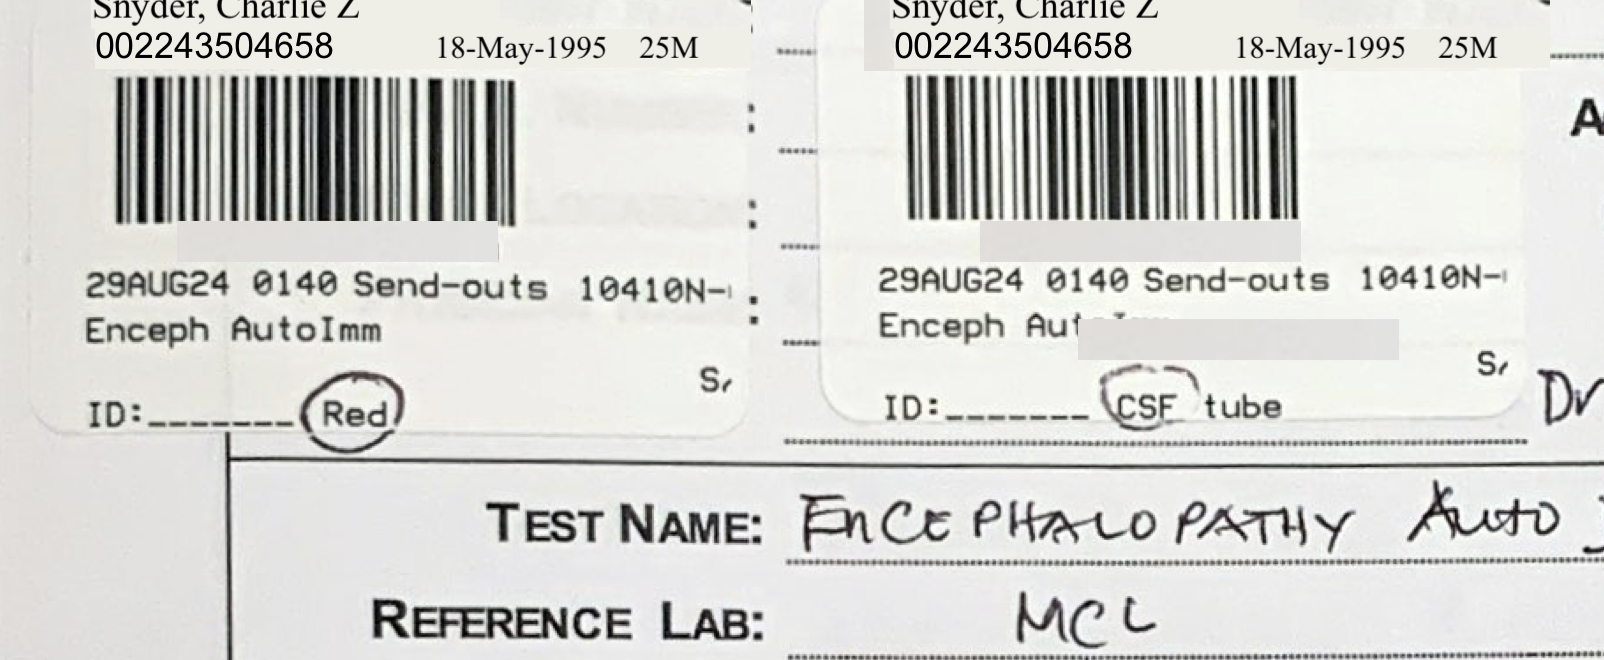 Snyder, Charlie Z
002243504658 18-May-1995 25M
29AUG24 0140 Send-outs 10410N-
Enceph AutoImm
S
ID:_______ Red
Snyder, Charlie Z
002243504658 18-May-1995 25M
29AUG24 0140 Send-outs 10410N-
Enceph Aut
S
ID:_______ CSF tube
:
:
:
A
Dr
TEST NAME: ENCEPHALOPATHY Auto
REFERENCE LAB: MCL